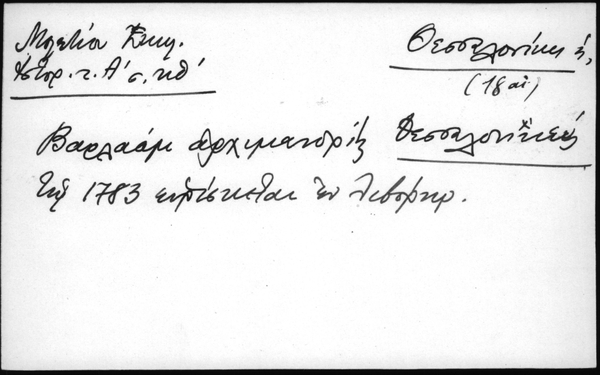 Μελετίου Ἐκκλ.
Ἱστορ. τ. Α΄ σ. κθ΄
Θεσσαλονίκη
(18 αἰ)
Βαρλαάμ ἀρχιμανδρίτης Θεσσαλονικεύς
τῷ 1783 εὑρίσκεται ἐν Λιβόρνῳ.